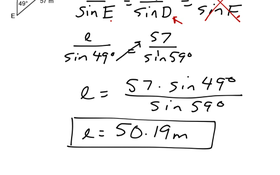 49° 57 m
E
sin E = sin D = sin F
e/sin 49° = 57/sin 59°
e = 57 · sin 49°/sin 59°
e = 50.19m